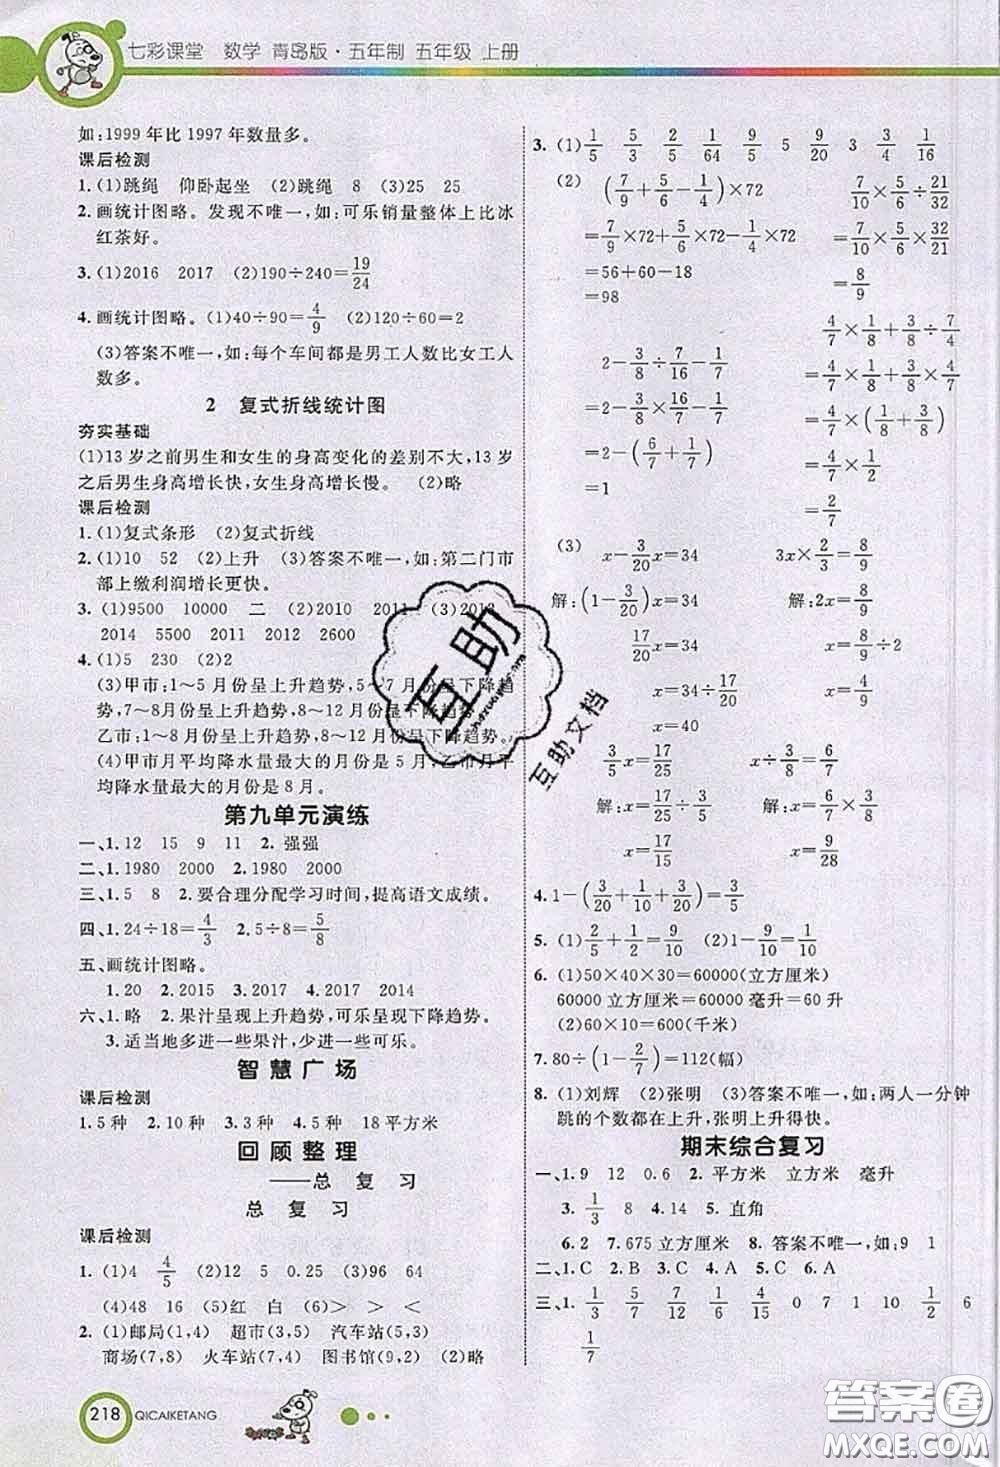 七彩课堂 数学 青岛版·五年制 五年级 上册
如:1999 年比 1997 年数量多。
课后检测
1. (1)跳绳 仰卧起坐 (2)跳绳 8 (3)25 25
2. 画统计图略。发现不唯一,如:可乐销量整体上比冰
红茶好。
3. (1)2016 2017 (2)190÷240=19/24
4. 画统计图略。(1)40÷90=4/9 (2)120÷60=2
(3)答案不唯一,如:每个车间都是男工人数比女工人
数多。
2 复式折线统计图
夯实基础
(1)13 岁之前男生和女生的身高变化的差别不大,13 岁
之后男生身高增长快,女生身高增长慢。 (2)略
课后检测
1. (1)复式条形 (2)复式折线
2. (1)10 52 (2)上升 (3)答案不唯一,如:第二门市
部上缴利润增长更快。
3. (1)9500 10000 二 (2)2010 2011 (3)2013
2014 5500 2011 2012 2600
4. (1)5 230 (2)2
(3)甲市:1~5 月份呈上升趋势,5~7 月份呈下降趋
势,7~8月份呈上升趋势,8~12 月份呈下降趋势。
乙市:1~8月份呈上升趋势,8~12月呈下降趋势。
(4)甲市月平均降水量最大的月份是 5 月,乙市月平
均降水量最大的月份是 8 月。
第九单元演练
一、1. 12 15 9 11 2. 强强
二、1. 1980 2000 2. 1980 2000
三、1. 5 8 2. 要合理分配学习时间,提高语文成绩。
四、1. 24÷18=4/3 2. 5÷8=5/8
五、画统计图略。
1. 20 2. 2015 3. 2017 4. 2017 2014
六、1. 略 2. 果汁呈现上升趋势,可乐呈现下降趋势。
3. 适当地多进一些果汁,少进一些可乐。
智慧广场
课后检测
1. 5 种 2. 10 种 3. 9 种 4. 5 种 18 平方米
回顾整理
——总复习
总复习
课后检测
1. (1)4 4/5 (2)12 5 0.25 (3)96 64
(4)48 16 (5)红 白 (6)> > > >
2. (1)邮局(1,4) 超市(3,5) 汽车站(5,3)
商场(7,8) 火车站(7,4) 图书馆(9,2) (2)略
218 QICAIKETANG
3. (1) 1/5 5/3 2/5 1/64 9/50 5 9/20 3 3/4 1/16
(2) (7/9+5/6-1/4)×72 7/10×5/6÷21/32
=7/9×72+5/6×72-1/4×72 =7/10×5/6×32/21
=56+60-18 =8/9
=98
2-3/8÷7/16-1/7 4/7×1/8+3/8÷7/4
=2-3/8×16/7-1/7 =4/7×1/8+3/8×4/7
=2-(6/7+1/7) =4/7×(1/8+3/8)
=1 =2/7
(3) x-3/20x=34 3x×2/3=8/9
解:(1-3/20)x=34 解:2x=8/9
17/20x=34 x=8/9÷2
x=34÷17/20 x=4/9
x=40
3/5x=17/25 x÷5/6=3/8
解:x=17/25÷3/5 解:x=5/6×3/8
x=17/15 x=9/28
4. 1-(3/20+1/10+4/5)
5. (1)2/5+1/2=9/10 (2)1-9/10=1/10
6. (1)50×40×30=60000(立方厘米)
60000 立方厘米=60000 毫升=60 升
(2)60×10=600(千米)
7. 80÷(1-2/7)=112(幅)
8. (1)刘辉 (2)张明 (3)答案不唯一,如:两人一分钟
跳的个数都在上升,张明上升得快。
期末综合复习
一、1. 9 12 0.6 2. 平方米 立方米 毫升
3. 1/3 8 4. 14 5. 直角
6. 2 7. 675 立方厘米 8. 答案不唯一,如:9 1
二、1. C 2. B 3. C 4. A 5. C 6. A
三、1. 1/3 5/7 7/12 1/6 4/15 0 7 1 10 1/2 6
1/7
互助
互助文档
答案圈
MXQE.COM